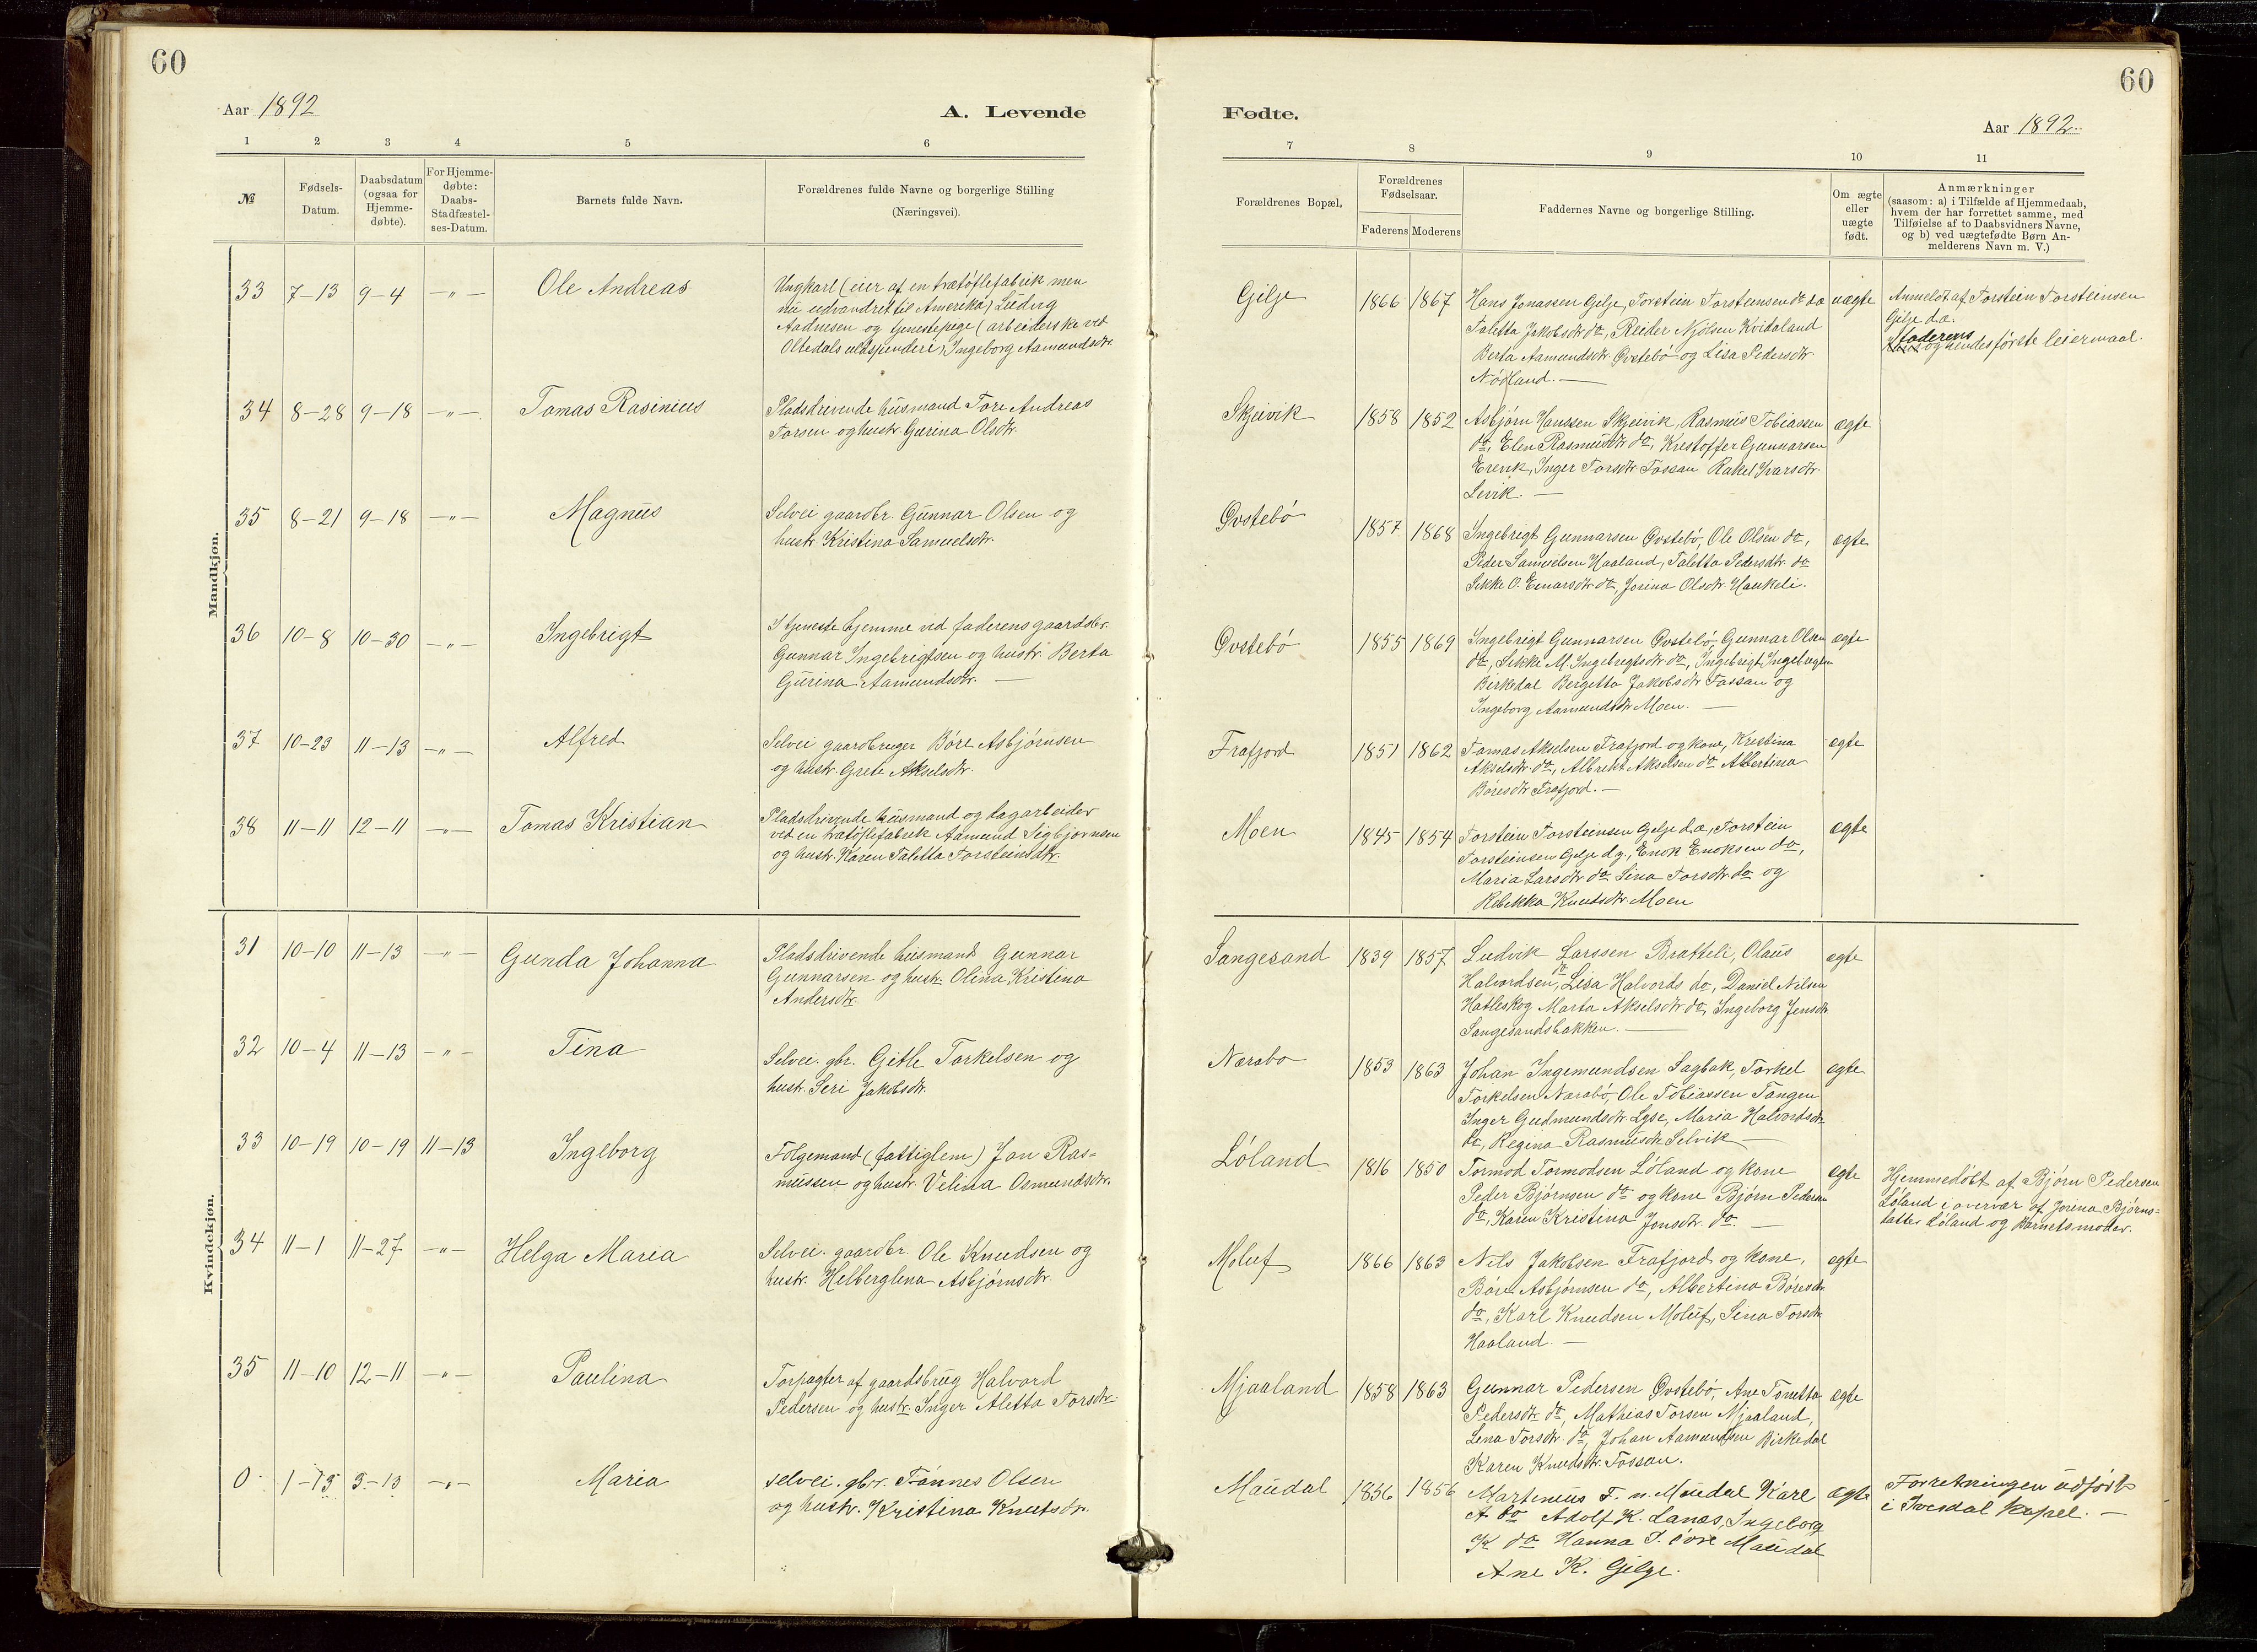 60
60
Aar 1892
A. Levende
Fødte.
Aar 1892.
1 2 3 4 5 6
7 8 9 10 11
№
Fødsels-
Datum.
Daabsdatum
(ogsaa for
Hjemme-
døbte).
For Hjemme-
døbte:
Daabs-
Stadfæstel-
ses-Datum.
Barnets fulde Navn.
Forældrenes fulde Navne og borgerlige Stilling
(Næringsvei).
Forældrenes Bopæl.
Forældrenes
Fødselsaar.
Faderens Moderens
Faddernes Navne og borgerlige Stilling.
Om ægte
eller
uægte
født.
Anmærkninger
(saasom: a) i Tilfælde af Hjemmedaab,
hvem der har forrettet samme, med
Tilføielse af to Daabsvidners Navne,
og b) ved uægtefødte Børn An-
melderens Navn m. V.)
Mandkjøn.
33 7-13 9-4 -„- Ole Andreas
Ungkarl (eier af en trætøflefabrik men
nu udvandret til Amerika) Ludvig
Aadnesen og tjenestepige (arbeiderske ved
Oltedals uldspinderi) Ingeborg Aamundsdtr.
Gilje 1866 1867
Hans Jonassen Gilje, Torstein Torsteinsen do d.æ
Taletta Jakobsdtr do, Reider Njølsen Kvidaland
Berta Aamundsdtr. Øvstebø og Lisa Pedersdtr.
Nødland. —
uægte
Anmeldt af Torstein Torsteinsen
Gilje d.æ.
faderens
og hendes første leiermaal.
34 8-28 9-18 -„- Tomas Rasinius
Pladsdrivende husmand Tore Andreas
Torsen og hustr. Gurina Olsdtr.
Skjeivik 1858 1852
Asbjørn Hanssen Skjeivik, Rasmus Tobiassen
do, Elen Rasmusdtr do, Krestoffer Gunnarsen
Erevik, Inger Torsdtr Tossan Rakel Ivarsdtr.
Levik. —
ægte
35 8-21 9-18 -„- Magnus
Selvei gaardbr. Gunnar Olsen og
hustr. Kristina Samuelsdtr.
Øvstebø 1857 1868
Ingebrigt Gunnarsen Øvstebø, Ole Olsen do,
Peder Samuelsen Haaland, Taletta Pedersdtr. do
Sikke O. Einarsdtr. do, Jorina Olsdtr. Haukeli.
ægte
36 10-8 10-30 -„- Ingebrigt
I tjeneste hjemme ved faderens gaardsbr.
Gunnar Ingebrigtsen og hustr. Berta
Gurina Aamundsdtr. —
Øvstebø 1855 1869
Ingebrigt Gunnarsen Øvstebø, Gunnar Olsen
do, Sikke M. Ingebrigtsdtr do, Ingebrigt Ingebrigtsen
Birkedal Bergetta Jakobsdtr Tossan og
Ingeborg Aamundsdtr Moen. —
ægte
37 10-23 11-13 -„- Alfred
Selvei gaardbruger Børe Asbjørnsen
og hustr. Grete Akselsdtr.
Frafjord 1851 1862
Tomas Akselsen Frafjord og kone, Kristina
Akselsdtr. do, Albrekt Akselsen do Albertina
Børesdtr Frafjord. —
ægte
38 11-11 12-11 -„- Tomas Kristian
Pladsdrivende husmand og dagarbeider
ved en trætøflefabrik Aamund Sigbjørnsen
og hustr. Karen Taletta Torsteinsdtr.
Moen 1845 1854
Torstein Torsteinsen Gilje d.æ, Torstein
Torsteinsen Gilje d.y., Enok Enoksen do,
Maria Larsdtr. do Sina Torsdtr. do og
Rebekka Knudsdtr Moen
ægte
Kvindekjøn.
31 10-10 11-13 -„- Gunda Johanna
Pladsdrivende husmand Gunnar
Gunnarsen og hustr. Olina Kristina
Andersdtr.
Sangesand 1839 1857
Ludvik Larssen Bratteli, Olaus
Halvordsen do, Lisa Halvords do, Daniel Nilsen
Hatleskog Marta Akselsdtr do, Ingeborg Jensdtr.
Sangesandsbakken. —
ægte
32 10-4 11-13 -„- Tina
Selvei. gbr. Gitle Torkelsen og
hustr. Seri Jakobsdtr.
Nærabø 1853 1863
Johan Ingemundsen Sagbak, Torkel
Torkelsen Nærabø, Ole Tobiassen Tangen
Inger Gudmundsdtr. Lyse, Maria Halvordsdtr.
do, Regina Rasmusdtr Selvik —
ægte
33 10-19 10-19 11-13 Ingeborg
Følgemand (fattiglem) Jon Ras-
mussen og hustr. Velina Osmundsdtr.
Løland 1816 1850
Tormod Tormodsen Løland og kone
Peder Bjørnsen do og kone Bjørn Pedersen
do, Karen Kristina Jonsdtr. do. —
ægte
Hjemmedøbt af Bjørn Pedersen
Løland i overvær af Jorina Bjørns-
datter Løland og Barnets moder.
34 11-1 11-27 -„- Helga Maria
Selvei. gaardbr. Ole Knudsen og
hustr. Helberglena Asbjørnsdtr.
Moluf 1866 1863
Nils Jakobsen Frafjord og kone,
Børe Asbjørnsen do, Albertina Børesdtr.
do, Karl Knudsen Moluf, Sina Torsdtr.
Haaland. —
ægte
35 11-10 12-11 -„- Paulina
Forpagter af gaardsbrug Halvord
Pedersen og hustr. Inger Aletta Torsdtr.
Mjaaland 1858 1863
Gunnar Pedersen Øvstebø, Ane Tonetta
Pedersdtr. do, Mathias Torsen Mjaaland,
Lena Torsdtr. do, Johan Aamundsen Birkedal
Karen Knudsdtr. Tossan.
ægte
0 1-15 3-13 -„- Maria
selvei. gbr. Tønnes Olsen
og hustr. Kristina Knutsdr.
Maudal 1856 1856
Martenius T. n. Maudal Karl
A. do Adolf K. Lanas, Ingeborg
K do Hanna I. øvre Maudal
Ane K. Gilje.
ægte
Forretningen udført
i Ivesdal Kapel. —